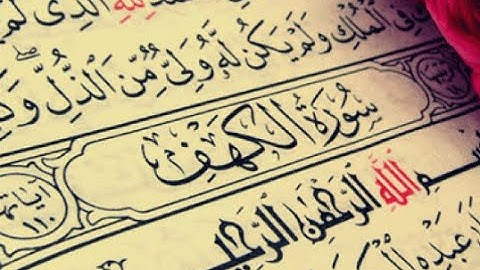 لِلَّهِ الَّذِى لَمْ
فِى الْمُلْكِ وَلَمْ يَكُن لَّهُۥ وَلِىٌّ مِّنَ الذُّلِّ وَ
سُورَةُ الكَهْفِ
آياتها ١١٠
سم اللَّهِ الرَّحْمَٰنِ الرَّحِيمِ
عَبْدِهِ